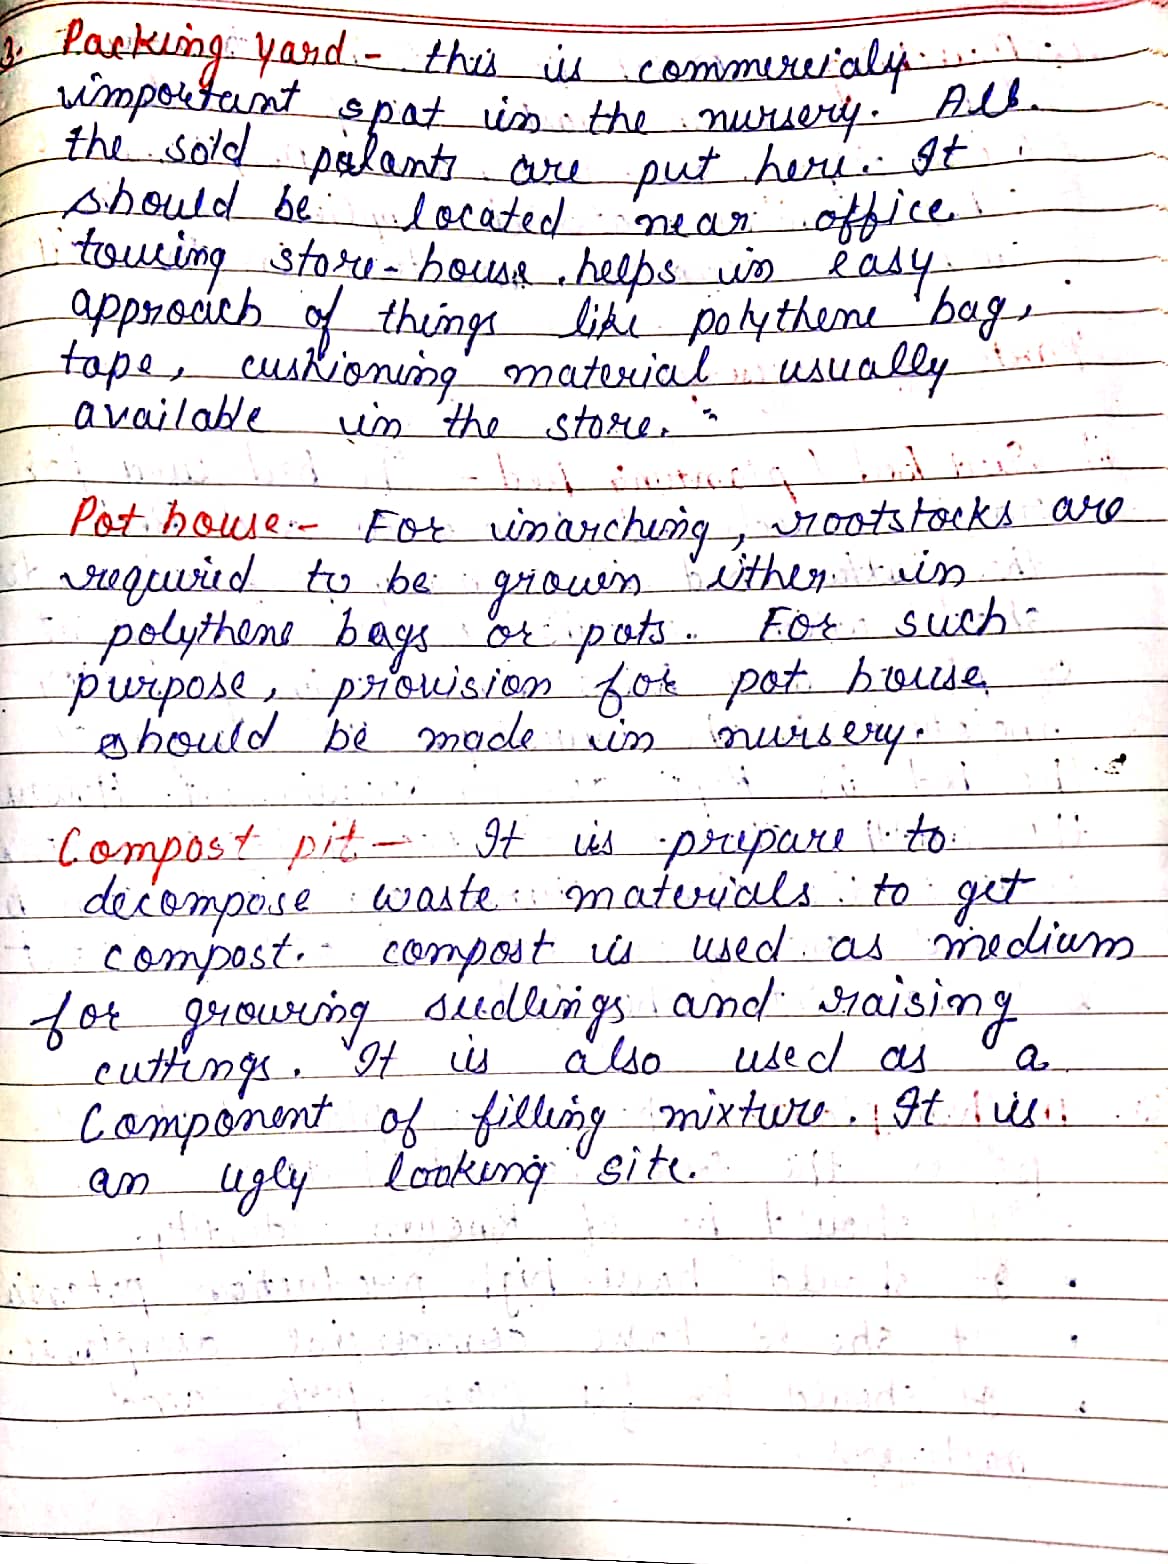 3. Packing yard - this is commercialy
important spat in the nursery. All
the sold palants are put here. It
should be located near office
toucing store-house. helps in easy
approach of things like polythene bag,
tape, cushioning material usually
available in the store.
Pot house - For inarching, rootstocks are
required to be grown either in
polythene bags or pots. For such
purpose, provision for pot house
should be made in nursery.
Compost pit - It is prepare to
decompose waste materials to get
compost. compost is used as medium
for growing seedlings and raising
cuttings. It is also used as a
Component of filling mixture. It is
an ugly looking site.